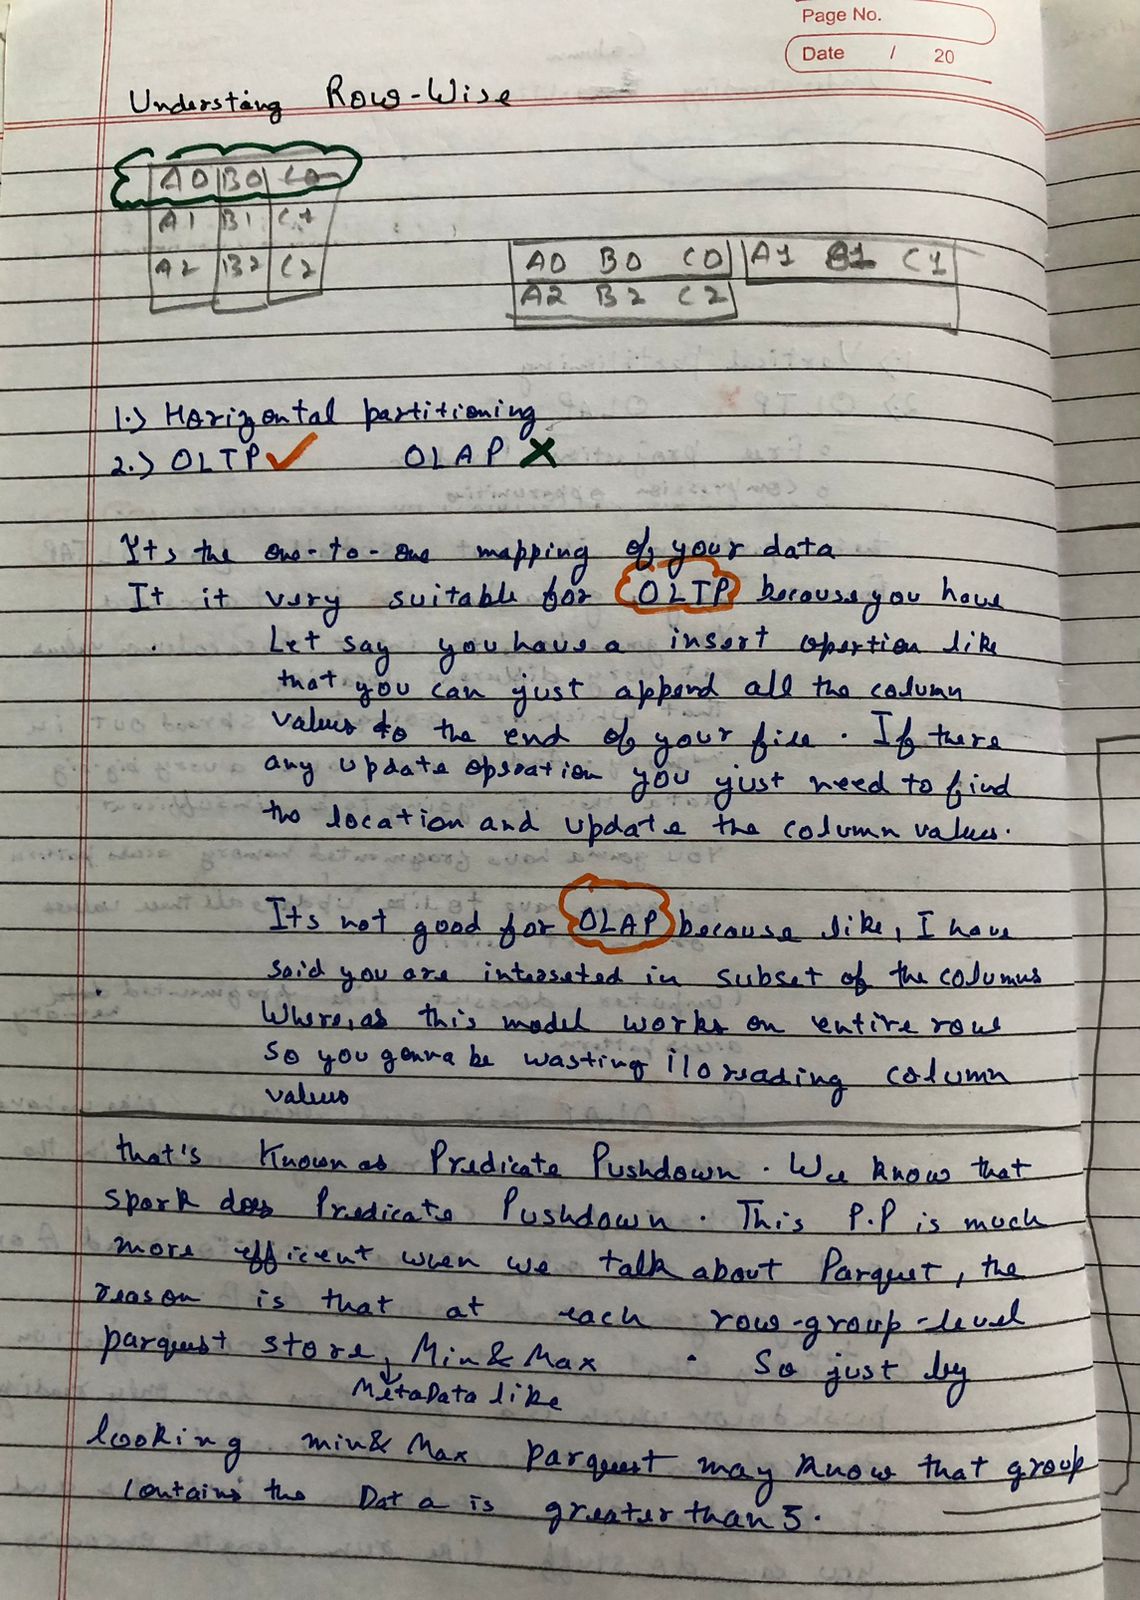 Page No.
Date / 20
Understaing Row-Wise
A0 B0 C0
A1 B1 C1
A2 B2 C2
A0 B0 C0 A1 B1 C1
A2 B2 C2
1.) Horizontal partitioning
2.) OLTP ✓ OLAP ✗
Its the one-to-one mapping of your data
It it very suitable for OLTP because you have
Let say you have a insert opertion like
that you can just append all the column
values to the end of your file. If there
any update opsration you just need to find
the location and update the column values.
Its not good for OLAP because like, I have
said you are interseted in subset of the columns
Where, as this model works on entire row
so you gonna be wasting i/o reading column
values
that's Known as Predicate Pushdown. We know that
spark does Predicate Pushdown. This P.P is much
more efficient when we talk about Parquet, the
reason is that at each row-group-level
parquet store, Min & Max . So just by
MetaData like
looking min & Max parquest may know that group
contains the Data is greater than 5.